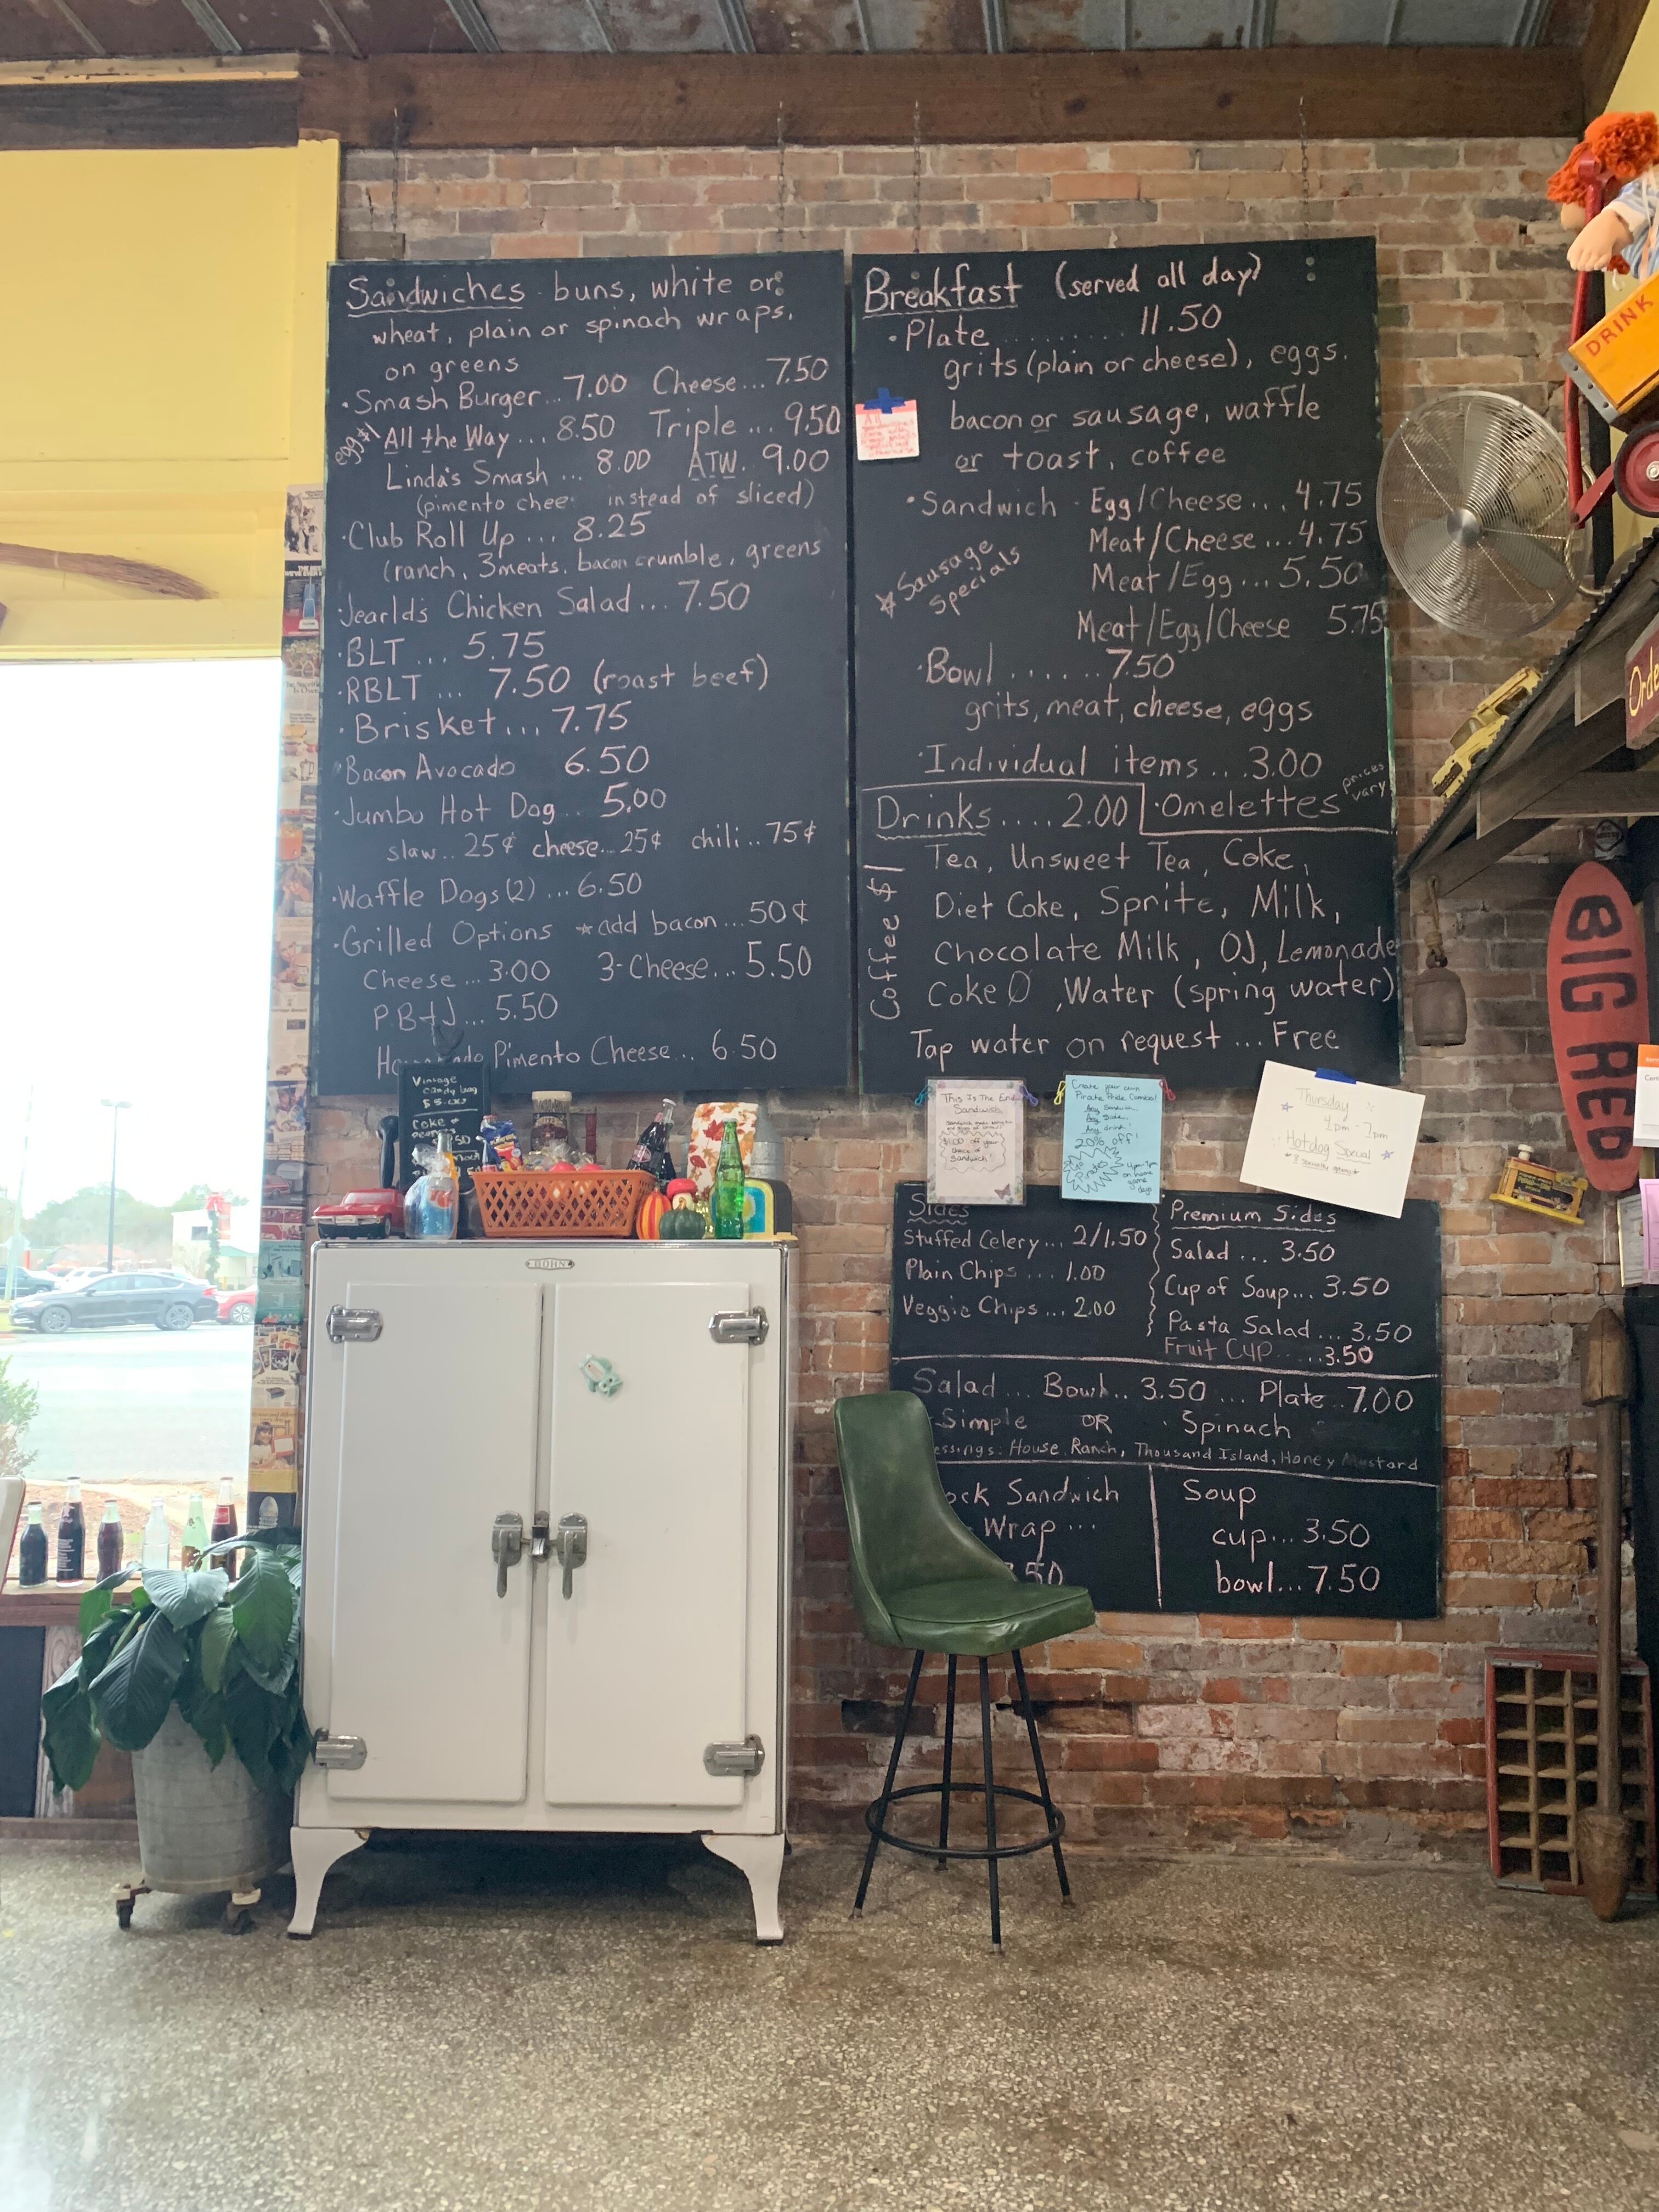 Sandwiches - buns, white or
wheat, plain or spinach wraps,
on greens
·Smash Burger...7.00 Cheese...7.50
egg $1
All the Way ... 8.50 Triple ... 9.50
Linda's Smash ... 8.00 ATW.. 9.00
(pimento chee instead of sliced)
·Club Roll Up ... 8.25
(ranch, 3 meats, bacon crumble, greens
·Jearld's Chicken Salad ... 7.50
·BLT ... 5.75
·RBLT ... 7.50 (roast beef)
·Brisket... 7.75
·Bacon Avocado 6.50
·Jumbo Hot Dog.. 5.00
slaw.. 25¢ cheese...25¢ chili..75¢
·Waffle Dogs(2) ...6.50
·Grilled Options ☆add bacon...50¢
Cheese...3.00 3-Cheese...5.50
PB+J...5.50
Pimento Cheese... 6.50
Breakfast (served all day)
·Plate .......... 11.50
grits (plain or cheese), eggs.
bacon or sausage, waffle
or toast, coffee
·Sandwich - Egg/Cheese...4.75
Meat/Cheese...4.75
Meat/Egg...5.50
Meat/Egg/Cheese 5.75
☆Sausage
Specials
·Bowl.......7.50
grits, meat, cheese, eggs
·Individual items...3.00
Drinks....2.00
·Omelettes
prices
vary
Coffee $1
Tea, Unsweet Tea, Coke,
Diet Coke, Sprite, Milk,
Chocolate Milk, OJ, Lemonade
Coke Ø, Water (spring water)
Tap water on request...Free
Vintage
candy bag
Coke +
peanuts
BOHN
This Is The End
Sandwich
Create your own
Pirate Pride Combo!
Any Sandwich,
Any Side,
Any drink!
20% off!
Thursday
4pm - 7pm
Hotdog Special
Sides
Stuffed Celery...2/1.50
Plain Chips...1.00
Veggie Chips...2.00
Premium Sides
Salad...3.50
Cup of Soup...3.50
Pasta Salad...3.50
Fruit Cup.....3.50
Salad... Bowl..3.50 ... Plate..7.00
Simple OR Spinach
essings: House, Ranch, Thousand Island, Honey Mustard
ock Sandwich
Wrap...
.50
Soup
cup...3.50
bowl...7.50
DRINK
Orde
BIG RED